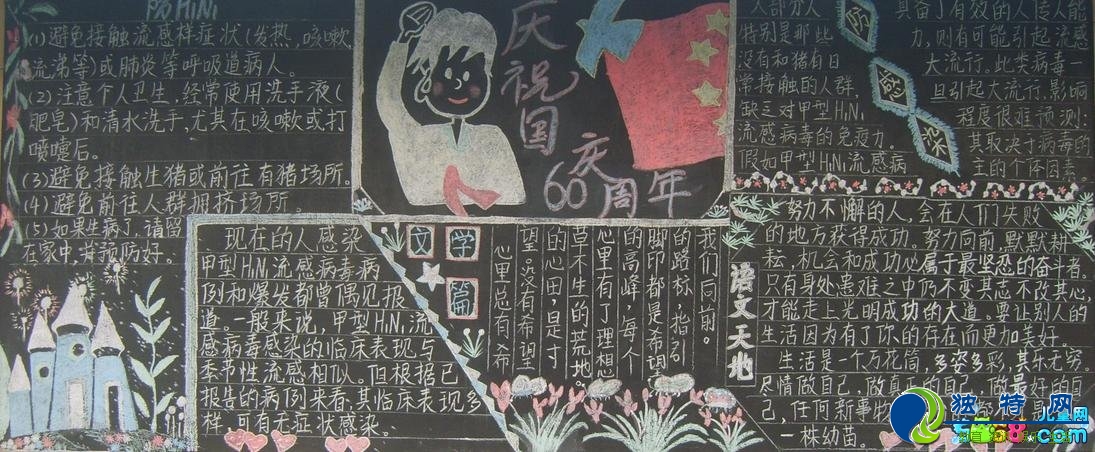 防H1N1
(1)避免接触流感样症状(发热,咳嗽,
流涕等)或肺炎等呼吸道病人。
(2)注意个人卫生,经常使用洗手液(
肥皂)和清水洗手,尤其在咳嗽或打
喷嚏后。
(3)避免接触生猪或前往有猪场所。
(4)避免前往人群拥挤场所
(5)如果生病了,请留
在家中,并预防好。
庆祝国庆
60周年
人部分人
特别是那些
没有和猪有日
常接触的人群,
缺乏对甲型H1N1
流感病毒的免疫力。
假如甲型H1N1流感病
防感染
具备了有效的人传人能
力,则有可能引起流感
大流行。此类病毒一
旦引起大流行,影响
程度很难预测:
其取决于病毒的
主的个体因素。
现在的人感染
甲型H1N1流感病毒病
例和爆发都曾偶见报
道。一般来说,甲型H1N1流
感病毒感染的临床表现与
季节性流感相似。但根据已
报告的病例来看,其临床表现多
样,可有无症状感染。
文学篇
我们向前。
的路标,指引
脚印都是希调
的高峰,每个
心里有了理想
草不生的荒地。
的心田,但是寸
望。没有希调
心里总有希
语文天地
努力不懈的人,会在人们失败
的地方获得成功。努力向前,默默耕
耘,机会和成功必属于最坚忍的奋斗者。
只有身处患难之中仍不变其志不改其心,
才能走上光明成功的大道。要让别人的
生活因为有了你的存在而更加美好。
生活是一个万花筒,多姿多彩,其乐无穷。
尽情做自己,做真正的自己,做最好的自
己,任何新事物
一株幼苗。
独特网
儿童网
.com